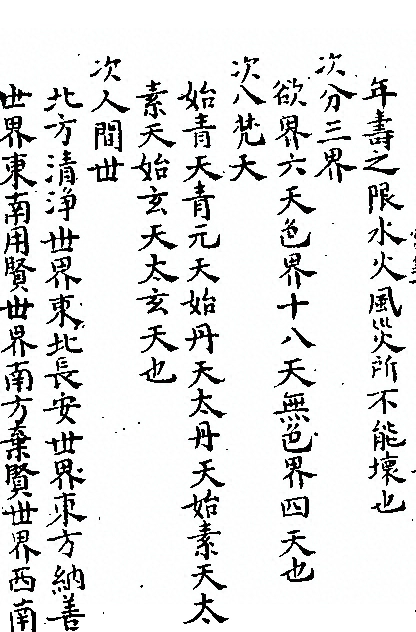 年壽之限水火風災所不能壞也
次分三界
欲界六天色界十八天無色界四天也
次八梵天
始青天青元天始丹天太丹天始素天太
素天始玄天太玄天也
次人間世
北方清淨世界東北長安世界東方納善
世界東南用賢世界南方棄賢世界西南